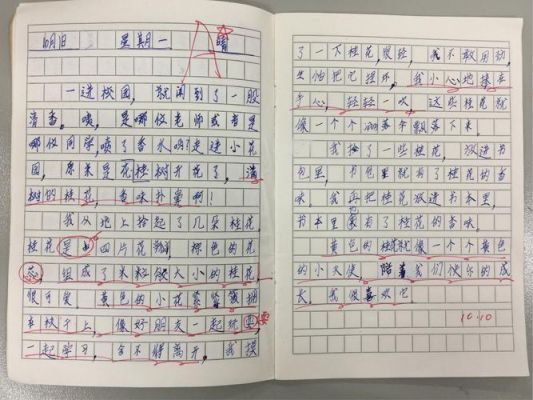 10月1日 星期一 晴
一进校园，就闻到了一股
清香。咦，是哪位老师或者是
哪位同学喷了香水吗？走进小花
园，原来是花桂树开花了。满
树的桂花，香味扑鼻啊！
我从地上拾起了几朵桂花，
桂花是 四片花瓣，棕色的花
组成了米粒般大小的桂花，
很可爱。黄色的小花紧紧拥
在枝干上，像好朋友一起玩耍，
一起学习，舍不得离开，我摸
了一下桂花，很轻，我不敢用劲，
生怕把它损坏。我小心地捧在
手心，轻轻一吹，这些桂花就
像一个个 落伞飘落下来。
我捡了一些桂花，放进书
包里，书包里就有了桂花的香
味。我再把桂花放进书本里，
书本里就有了桂花的香味。
黄色的桂花就像一个个黄色
的小天使，陪着我们快乐的成
长。我很喜欢它
10.10